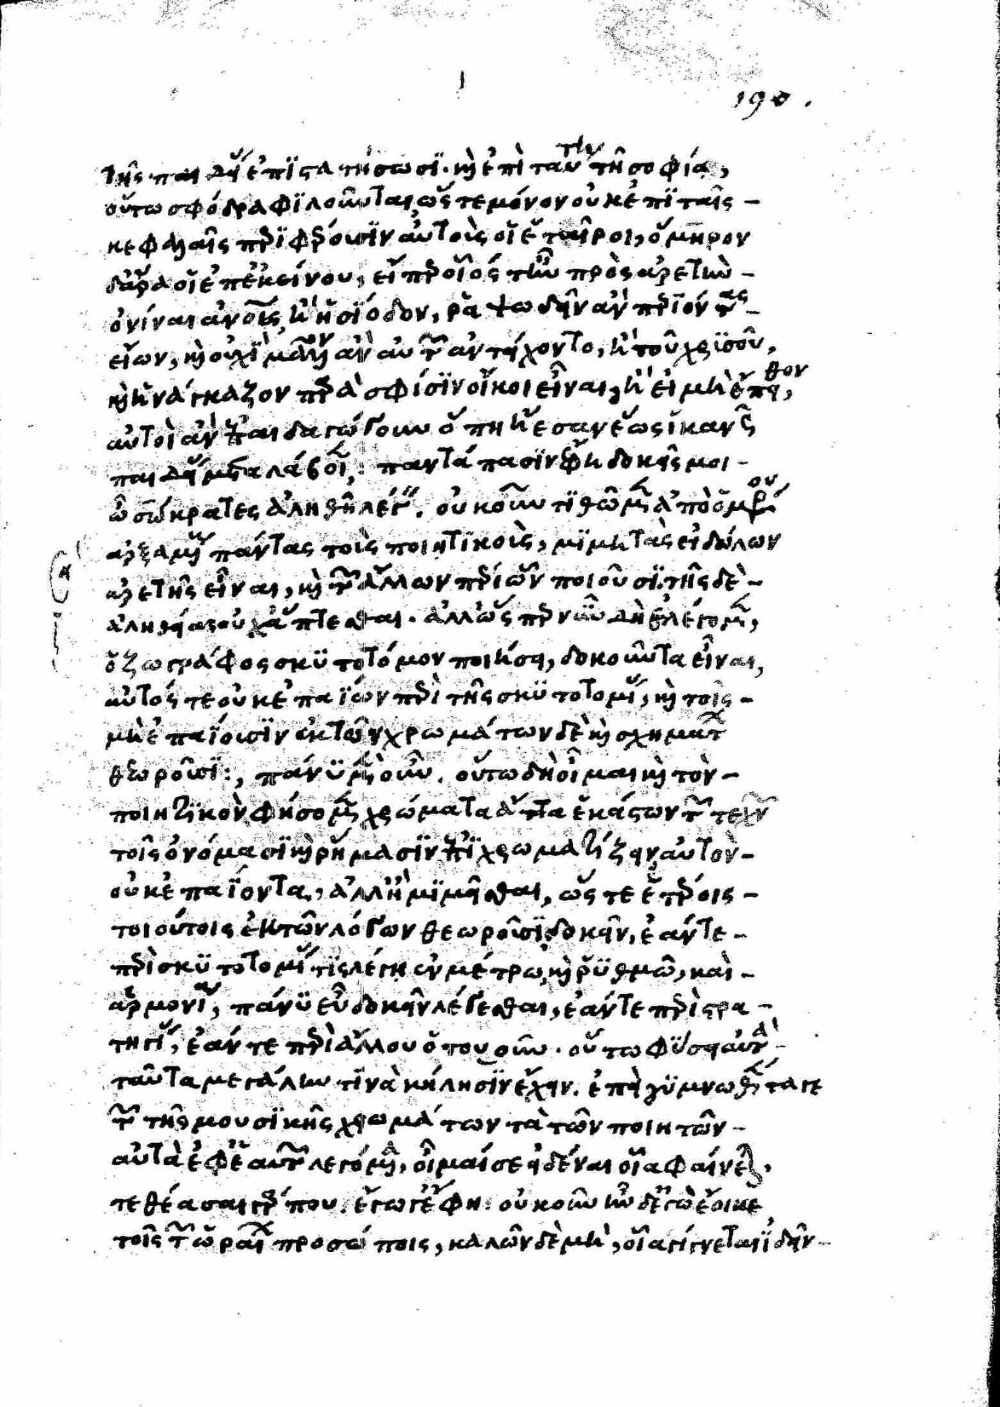 190.
τῆς παιδείας ἐπιστατήσωσι. καὶ ἐπὶ ταύτῃ τῇ σοφίᾳ,
οὕτω σφόδρα φιλοῦνται, ὥστε μόνον οὐκ ἐπὶ ταῖς
κεφαλαῖς περιφέρουσιν αὐτοὺς οἱ ἑταῖροι, ὅμηρον
δ' ἄρα οἱ ἐπ' ἐκείνου, εἴπερ οἷός τ' ἦν πρὸς ἀρετὴν
ὀνίναι ἀνθρώπους, ἢ ἡσίοδον, ῥαψωδεῖν ἂν περιιόντας
εἴων, καὶ οὐχὶ μᾶλλον ἂν αὐτῶν ἀντείχοντο, ἢ τοῦ χρυσοῦ,
καὶ ἠνάγκαζον παρὰ σφίσιν οἴκοι εἶναι, ἢ εἰ μὴ ἔπειθον,
αὐτοὶ ἂν ἐπαιδαγώγουν ὅπη ᾔεσαν ἕως ἱκανῶς
παιδείας μεταλάβοιεν: παντάπασιν ἔφη δοκεῖς μοι
ὦ σώκρατες ἀληθῆ λέγειν. οὐκοῦν τιθῶμεν ἀπὸ ὁμήρου
ἀρξαμένους πάντας τοὺς ποιητικοὺς, μιμητὰς εἰδώλων
ἀρετῆς εἶναι, καὶ τῶν ἄλλων περὶ ὧν ποιοῦσι, τῆς δὲ
ἀληθείας οὐχ ἅπτεσθαι. ἀλλ' ὥσπερ νῦν δὴ ἐλέγομεν,
ὁ ζωγράφος σκυτοτόμον ποιήσει, δοκοῦντα εἶναι,
αὐτός τε οὐκ ἐπαΐων περὶ τῆς σκυτοτομίας, καὶ τοῖς
μὴ ἐπαΐουσιν ἐκ τῶν χρωμάτων δὲ καὶ σχημάτων
θεωροῦσι:, πάνυ μὲν οὖν. οὕτω δὴ οἶμαι καὶ τὸν
ποιητικὸν φήσομεν χρώματα ἄττα ἑκάστων τῶν τεχνῶν
τοῖς ὀνόμασι καὶ ῥήμασιν ἐπιχρωματίζειν αὐτὸν
οὐκ ἐπαΐοντα, ἀλλ' ἢ μιμεῖσθαι, ὥστε ἑτέροις
τοιούτοις ἐκ τῶν λόγων θεωροῦσι δοκεῖν, ἐάν τε
περὶ σκυτοτομίας τις λέγη ἐν μέτρω, καὶ ῥυθμῶ, καὶ
ἁρμονία, πάνυ εὖ δοκεῖν λέγεσθαι, ἐάν τε περὶ στρα
τηγίας, ἐάν τε περὶ ἄλλου ὁτουοῦν. οὕτω φύσει αὐτὰ
ταῦτα μεγάλην τινὰ κήλησιν ἔχειν. ἐπεὶ γυμνωθέντα γε
τῶν τῆς μουσικῆς χρωμάτων τὰ τῶν ποιητῶν
αὐτὰ ἐφ' ἑαυτῶν λεγόμενα, οἶμαί σε εἰδέναι οἷα φαίνεται.
τεθέασαι γάρ που. ἔγωγ' ἔφη: οὐκοῦν ἦν δ' ἐγὼ ἔοικε
τοῖς τῶν ὡραίων προσώποις, καλῶν δὲ μὴ, οἷα γίγνεται ἰδεῖν